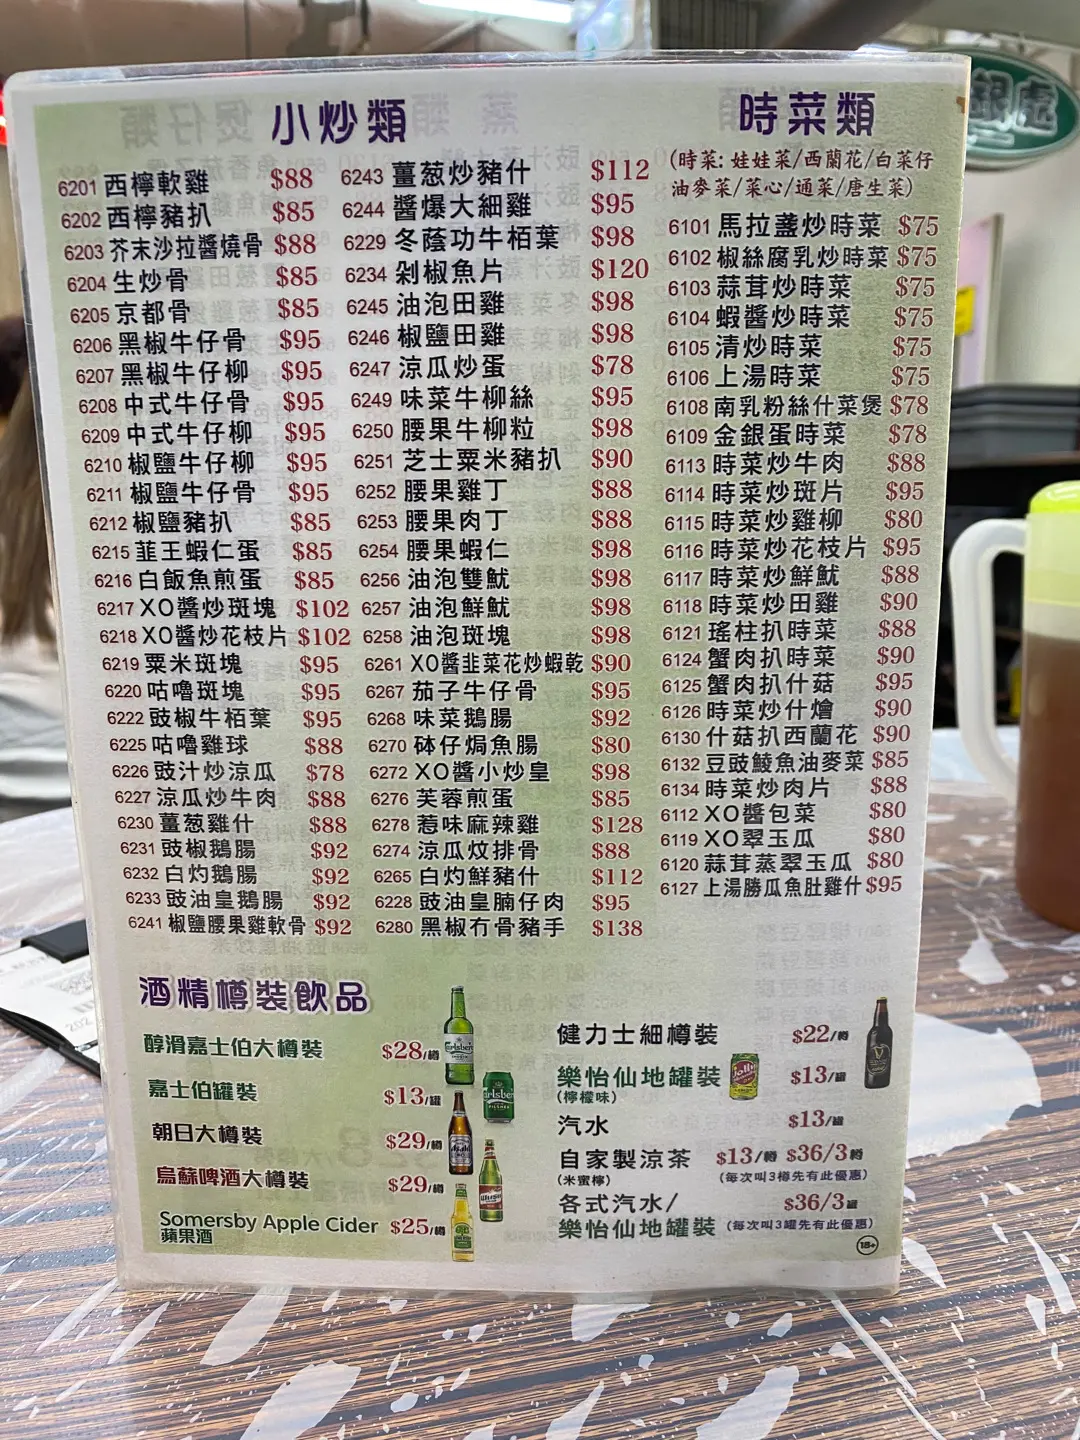 小炒類
6201 西檸軟雞 $88
6202 西檸豬扒 $85
6203 芥末沙拉醬燒骨 $88
6204 生炒骨 $85
6205 京都骨 $85
6206 黑椒牛仔骨 $95
6207 黑椒牛仔柳 $95
6208 中式牛仔骨 $95
6209 中式牛仔柳 $95
6210 椒鹽牛仔柳 $95
6211 椒鹽牛仔骨 $95
6212 椒鹽豬扒 $85
6215 韮王蝦仁蛋 $85
6216 白飯魚煎蛋 $85
6217 XO醬炒斑塊 $102
6218 XO醬炒花枝片 $102
6219 粟米斑塊 $95
6220 咕嚕斑塊 $95
6222 豉椒牛栢葉 $95
6225 咕嚕雞球 $88
6226 豉汁炒涼瓜 $78
6227 涼瓜炒牛肉 $88
6230 薑葱雞什 $88
6231 豉椒鵝腸 $92
6232 白灼鵝腸 $92
6233 豉油皇鵝腸 $92
6241 椒鹽腰果雞軟骨 $92
6243 薑葱炒豬什 $112
6244 醬爆大細雞 $95
6229 冬蔭功牛栢葉 $98
6234 剁椒魚片 $120
6245 油泡田雞 $98
6246 椒鹽田雞 $98
6247 涼瓜炒蛋 $78
6249 味菜牛柳絲 $95
6250 腰果牛柳粒 $98
6251 芝士粟米豬扒 $90
6252 腰果雞丁 $88
6253 腰果肉丁 $88
6254 腰果蝦仁 $98
6256 油泡雙魷 $98
6257 油泡鮮魷 $98
6258 油泡斑塊 $98
6261 XO醬韭菜花炒蝦乾 $90
6267 茄子牛仔骨 $95
6268 味菜鵝腸 $92
6270 砵仔焗魚腸 $80
6272 XO醬小炒皇 $98
6276 芙蓉煎蛋 $85
6278 惹味麻辣雞 $128
6274 涼瓜炆排骨 $88
6265 白灼鮮豬什 $112
6228 豉油皇腩仔肉 $95
6280 黑椒冇骨豬手 $138
時菜類
(時菜: 娃娃菜/西蘭花/白菜仔
油麥菜/菜心/通菜/唐生菜)
6101 馬拉盞炒時菜 $75
6102 椒絲腐乳炒時菜 $75
6103 蒜茸炒時菜 $75
6104 蝦醬炒時菜 $75
6105 清炒時菜 $75
6106 上湯時菜 $75
6108 南乳粉絲什菜煲 $78
6109 金銀蛋時菜 $78
6113 時菜炒牛肉 $88
6114 時菜炒斑片 $95
6115 時菜炒雞柳 $80
6116 時菜炒花枝片 $95
6117 時菜炒鮮魷 $88
6118 時菜炒田雞 $90
6121 瑤柱扒時菜 $88
6124 蟹肉扒時菜 $90
6125 蟹肉扒什菇 $95
6126 時菜炒什燴 $90
6130 什菇扒西蘭花 $90
6132 豆豉鯪魚油麥菜 $85
6134 時菜炒肉片 $88
6112 XO醬包菜 $80
6119 XO翠玉瓜 $80
6120 蒜茸蒸翠玉瓜 $80
6127 上湯勝瓜魚肚雞什 $95
酒精樽裝飲品
醇滑嘉士伯大樽裝 $28/樽
嘉士伯罐裝 $13/罐
朝日大樽裝 $29/樽
烏蘇啤酒大樽裝 $29/樽
Somersby Apple Cider $25/樽
蘋果酒
健力士細樽裝 $22/樽
樂怡仙地罐裝 $13/罐
(檸檬味)
汽水 $13/罐
自家製涼茶 $13/樽 $36/3樽
(米蜜檸) (每次叫3樽先有此優惠)
各式汽水/ $36/3罐
樂怡仙地罐裝 (每次叫3罐先有此優惠)
18+